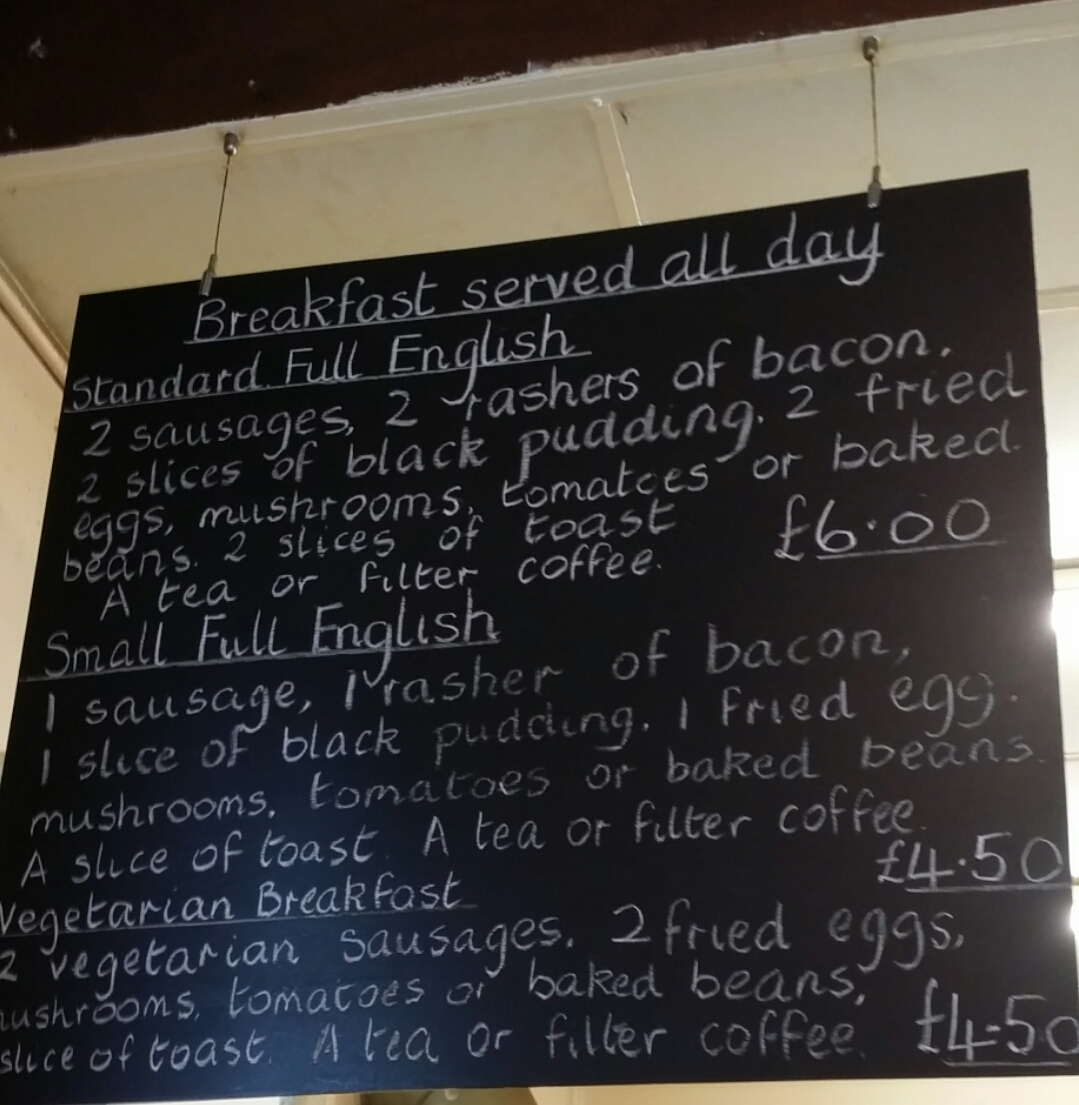 Breakfast served all day
Standard Full English
2 sausages, 2 rashers of bacon.
2 slices of black pudding. 2 fried
eggs, mushrooms, tomatoes or baked
beans. 2 slices of toast
£6.00
A tea or filter coffee.
Small Full English
1 sausage, 1 rasher of bacon,
1 slice of black pudding. 1 fried egg.
mushrooms, tomatoes or baked beans.
A slice of toast. A tea or filter coffee.
£4.50
Vegetarian Breakfast
2 vegetarian sausages. 2 fried eggs,
mushrooms, tomatoes or baked beans,
slice of toast. A tea or filter coffee.
£4-50